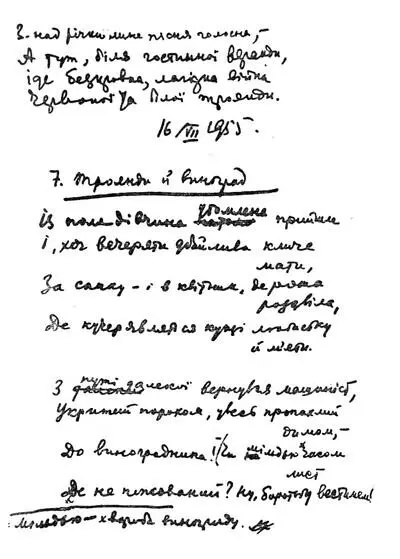 З-над річки лине пісня голосна,—
А тут, біля гостинної веранди,
іде безкровна, лагідна війна
Червоної та білої троянди.
16/VII 1955.
7. Троянди й виноград
Із поля дівчина утомлена прийшла
І, хоч вечеряти дбайлива кличе
мати,
За сапку — і в квітник, де рожа
розцвіла,
Де кучерявляться кущі любистку
й м'яти.
З путі далекої вернувся машиніст,
Укритий порохом, увесь пропахлий
димом,—
До виноградника! Чи мільдью часом
лист
Де не піпсований? Ну, боротьбу вестимем!
мільдью — хвороба винограду.